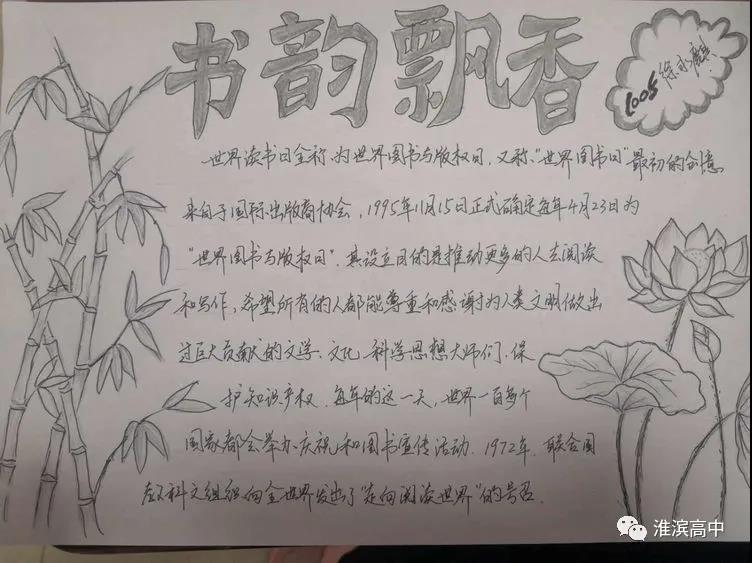 书韵飘香
1005 徐永
世界读书日全称为世界图书与版权日,又称“世界图书日”最初的创意
来自于国际出版商协会,1995年11月15日正式确定每年4月23日为
“世界图书与版权日”.其设立目的是推动更多的人去阅读
和写作,希望所有的人都能尊重和感谢为人类文明做出
过巨大贡献的文学、文化、科学思想大师们,保
护知识产权.每年的这一天,世界一百多个
国家都会举办庆祝和图书宣传活动.1972年,联合国
教科文组织向全世界发出了“走向阅读世界”的号召.
淮滨高中